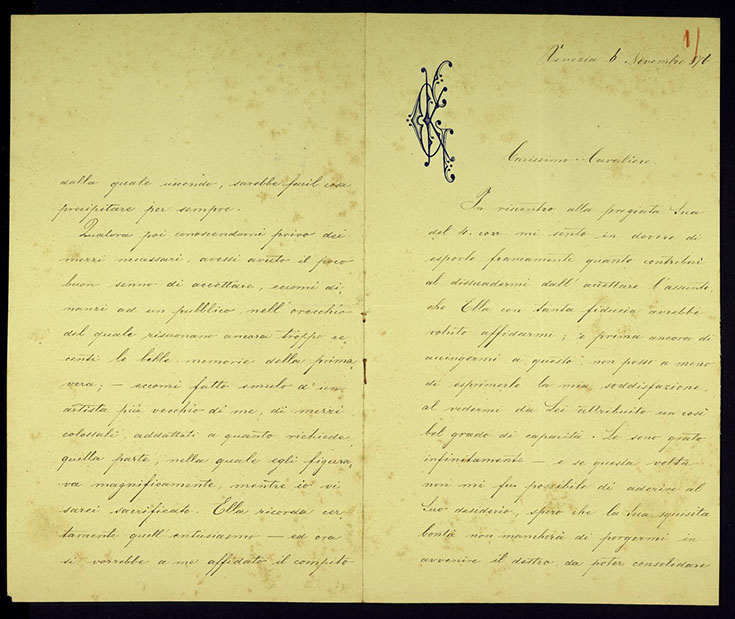 1/
Venezia 6 Novembre 876
Carissimo Cavaliere
In riscontro alla pregiata Sua
del 4. corr. mi sento in dovere di
esporle francamente quanto contribuì
al dissuadermi dall'accettare l'assunto
che Ella con tanta fiducia avrebbe
voluto affidarmi; e prima ancora di
accingermi a questo, non posso a meno
di esprimerle la mia soddisfazione,
al vedermi da Lei attribuito un così
bel grado di capacità. Le sono grato
infinitamente — e se questa volta
non mi fu possibile di aderire al
Suo desiderio, spero che la Sua squisita
bontà non mancherà di porgermi in
avvenire il destro da poter consolidare
dalla quale uscendo, sarebbe facil cosa
precipitare per sempre.
Qualora poi conoscendomi privo dei
mezzi necessari, avessi avuto il poco
buon senno di accettare, eccomi di,
nanzi ad un pubblico, nell'orecchio
del quale risuonano ancora troppo re,
centi le belle memorie della prima,
vera; — eccomi fatto emulo d'un
artista più vecchio di me, di mezzi
colossali, addattati a quanto richiede
quella parte, nella quale egli figura,
va magnificamente, mentre io vi
sarei sacrificato. Ella ricorda cer,
tamente quell'entusiasmo — ed ora
si vorrebbe a me affidato il compito